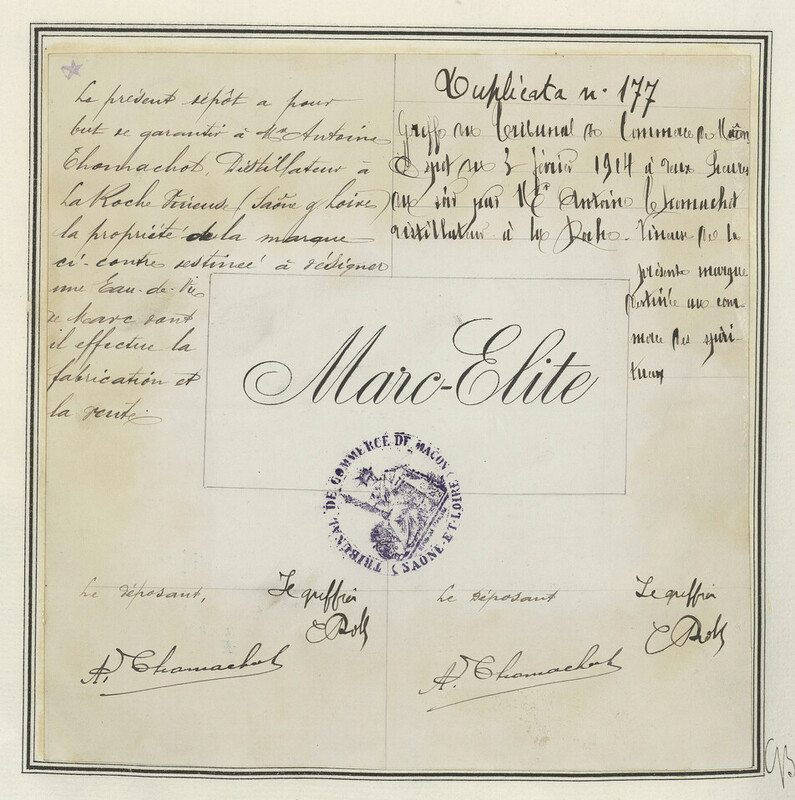 Le présent dépôt a pour
but de garantir à Mr Antoine
Thomachot, Distillateur à
La Roche Vineuse (Saône & Loire)
la propriété de la marque
ci-contre destinée à désigner
une Eau-de-Vie
de Marc dont
il effectue la
fabrication et
la vente.
Duplicata n. 177
Greffe du Tribunal de Commerce de Mâcon
Dépôt du 3 février 1914 à deux heures
du soir par Mr Antoine Thomachot
distillateur à la Roche-Vineuse de la
présente marque
destinée au com-
merce des spiri-
tueux
Marc-Elite
TRIBUNAL DE COMMERCE DE MACON
SAONE-ET-LOIRE
Le déposant,
Le greffier
A. Thomachot
Le déposant
Le greffier
A. Thomachot